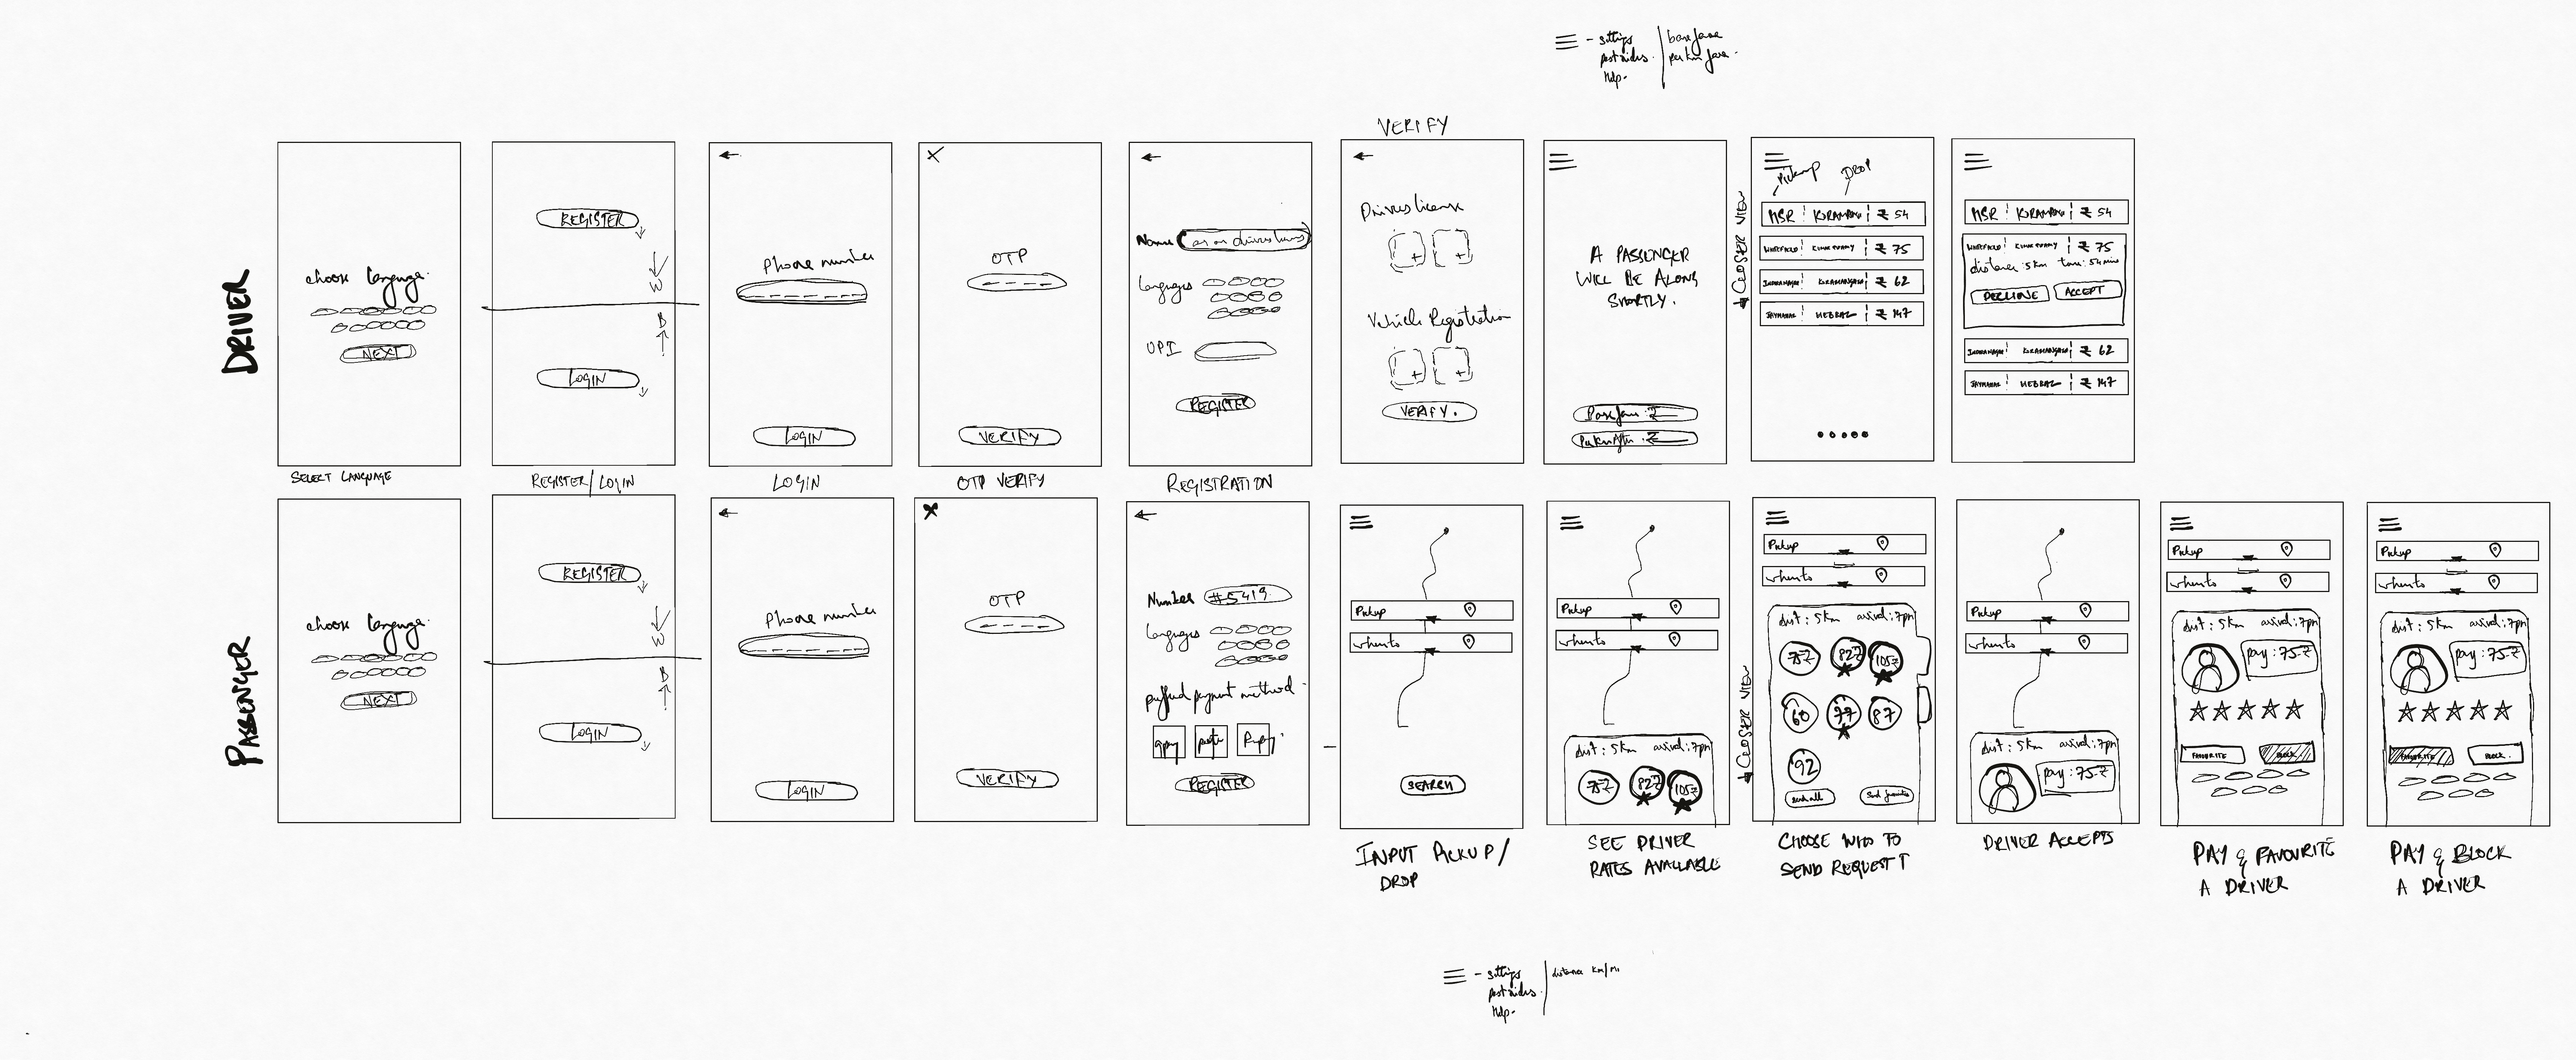 - settings | base fare
past rides. | per km fare.
Help.
DRIVER
choose language.
NEXT
SELECT LANGUAGE
REGISTER
W
B
LOGIN
REGISTER/LOGIN
Phone number
LOGIN
LOGIN
OTP
VERIFY
OTP VERIFY
Name as on drivers license
Languages
UPI
REGISTER
REGISTRATION
VERIFY
Drivers license
+ +
Vehicle Registration
+ +
VERIFY.
A PASSENGER
WILL BE ALONG
SHORTLY.
Base fare : ₹
Per km after : ₹
CLOSER VIEW
Pickup DROP
HSR KORAMANG ₹ 54
WHITEFIELD ₹ 75
INDIRANAGAR KORAMANGALA ₹ 62
JAYMAHAL HEBBAL ₹ 147
HSR KORAMANG ₹ 54
WHITEFIELD ₹ 75
distance : 5km time : 54 mins
DECLINE ACCEPT
INDIRANAGAR KORAMANGALA ₹ 62
JAYMAHAL HEBBAL ₹ 147
PASSENGER
choose language.
NEXT
REGISTER
W
B
LOGIN
Phone number
LOGIN
OTP
VERIFY
Number #5419
Languages
preffered payment method
gpay paytm
REGISTER
Pickup
where to
SEARCH
INPUT PICKUP/
DROP
Pickup
where to
dist : 5km arrival : 7pm
75₹ 82₹ 105₹
SEE DRIVER
RATES AVAILABLE
CLOSER VIEW
Pickup
where to
dist : 5km arrival : 7pm
75₹ 82₹ 105₹
60 77 87
92
send all send favourites
CHOOSE WHO TO
SEND REQUEST
Pickup
where to
dist : 5km arrival : 7pm
pay : 75₹
DRIVER ACCEPTS
Pickup
where to
dist : 5km arrival : 7pm
pay : 75₹
FAVOURITE BLOCK
PAY & FAVOURITE
A DRIVER
Pickup
where to
dist : 5km arrival : 7pm
pay : 75₹
FAVOURITE BLOCK.
PAY & BLOCK
A DRIVER
- settings | distance km/mi
past rides.
Help.